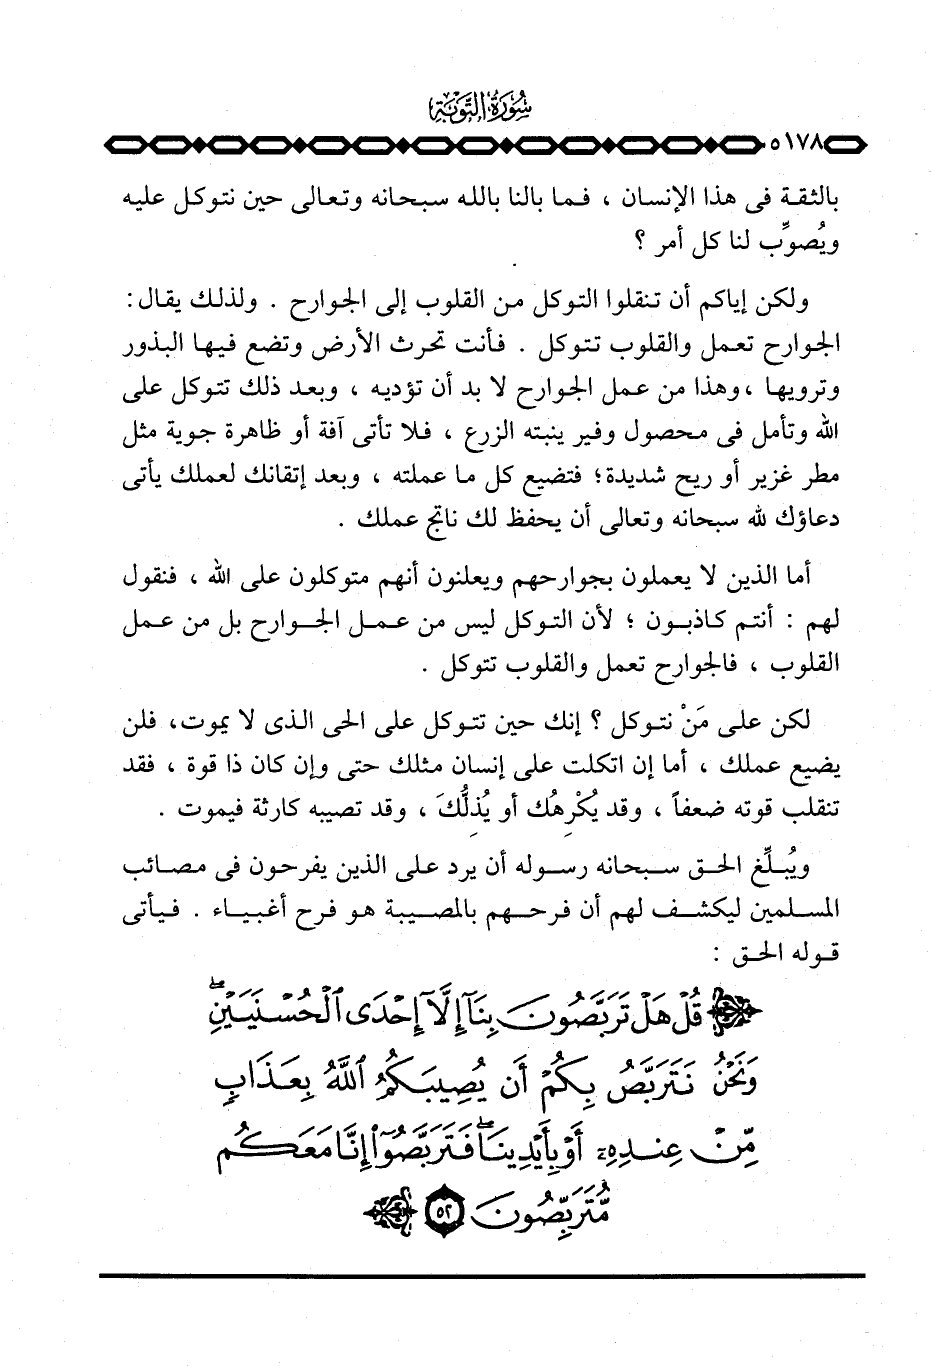 سُورَةُ التَّوْبَةِ
٥١٧٨
بالثقة فى هذا الإنسان ، فما بالنا بالله سبحانه وتعالى حين نتوكل عليه
ويُصوِّب لنا كل أمر ؟
ولكن إياكم أن تنقلوا التوكل من القلوب إلى الجوارح . ولذلك يقال :
الجوارح تعمل والقلوب تتوكل . فأنت تحرث الأرض وتضع فيها البذور
وترويها ، وهذا من عمل الجوارح لا بد أن تؤديه ، وبعد ذلك تتوكل على
الله وتأمل فى محصول وفير ينبته الزرع ، فلا تأتى آفة أو ظاهرة جوية مثل
مطر غزير أو ريح شديدة؛ فتضيع كل ما عملته ، وبعد إتقانك لعملك يأتى
دعاؤك لله سبحانه وتعالى أن يحفظ لك ناتج عملك .
أما الذين لا يعملون بجوارحهم ويعلنون أنهم متوكلون على الله ، فنقول
لهم : أنتم كاذبون ؛ لأن التوكل ليس من عمل الجوارح بل من عمل
القلوب ، فالجوارح تعمل والقلوب تتوكل .
لكن على مَنْ نتوكل ؟ إنك حين تتوكل على الحى الذى لا يموت، فلن
يضيع عملك ، أما إن اتكلت على إنسان مثلك حتى وإن كان ذا قوة ، فقد
تنقلب قوته ضعفاً ، وقد يُكْرِهُك أو يُذلُّكَ ، وقد تصيبه كارثة فيموت .
ويُبلِّغ الحق سبحانه رسوله أن يرد على الذين يفرحون فى مصائب
المسلمين ليكشف لهم أن فرحهم بالمصيبة هو فرح أغبياء . فيأتى
قوله الحق :
قُلْ هَلْ تَرَبَّصُونَ بِنَآ إِلَّآ إِحْدَى ٱلْحُسْنَيَيْنِۖ
وَنَحْنُ نَتَرَبَّصُ بِكُمْ أَن يُصِيبَكُمُ ٱللَّهُ بِعَذَابٍ
مِّنْ عِندِهِۦٓ أَوْ بِأَيْدِينَاۖ فَتَرَبَّصُوٓا۟ إِنَّا مَعَكُم
مُّتَرَبِّصُونَ ٥٢